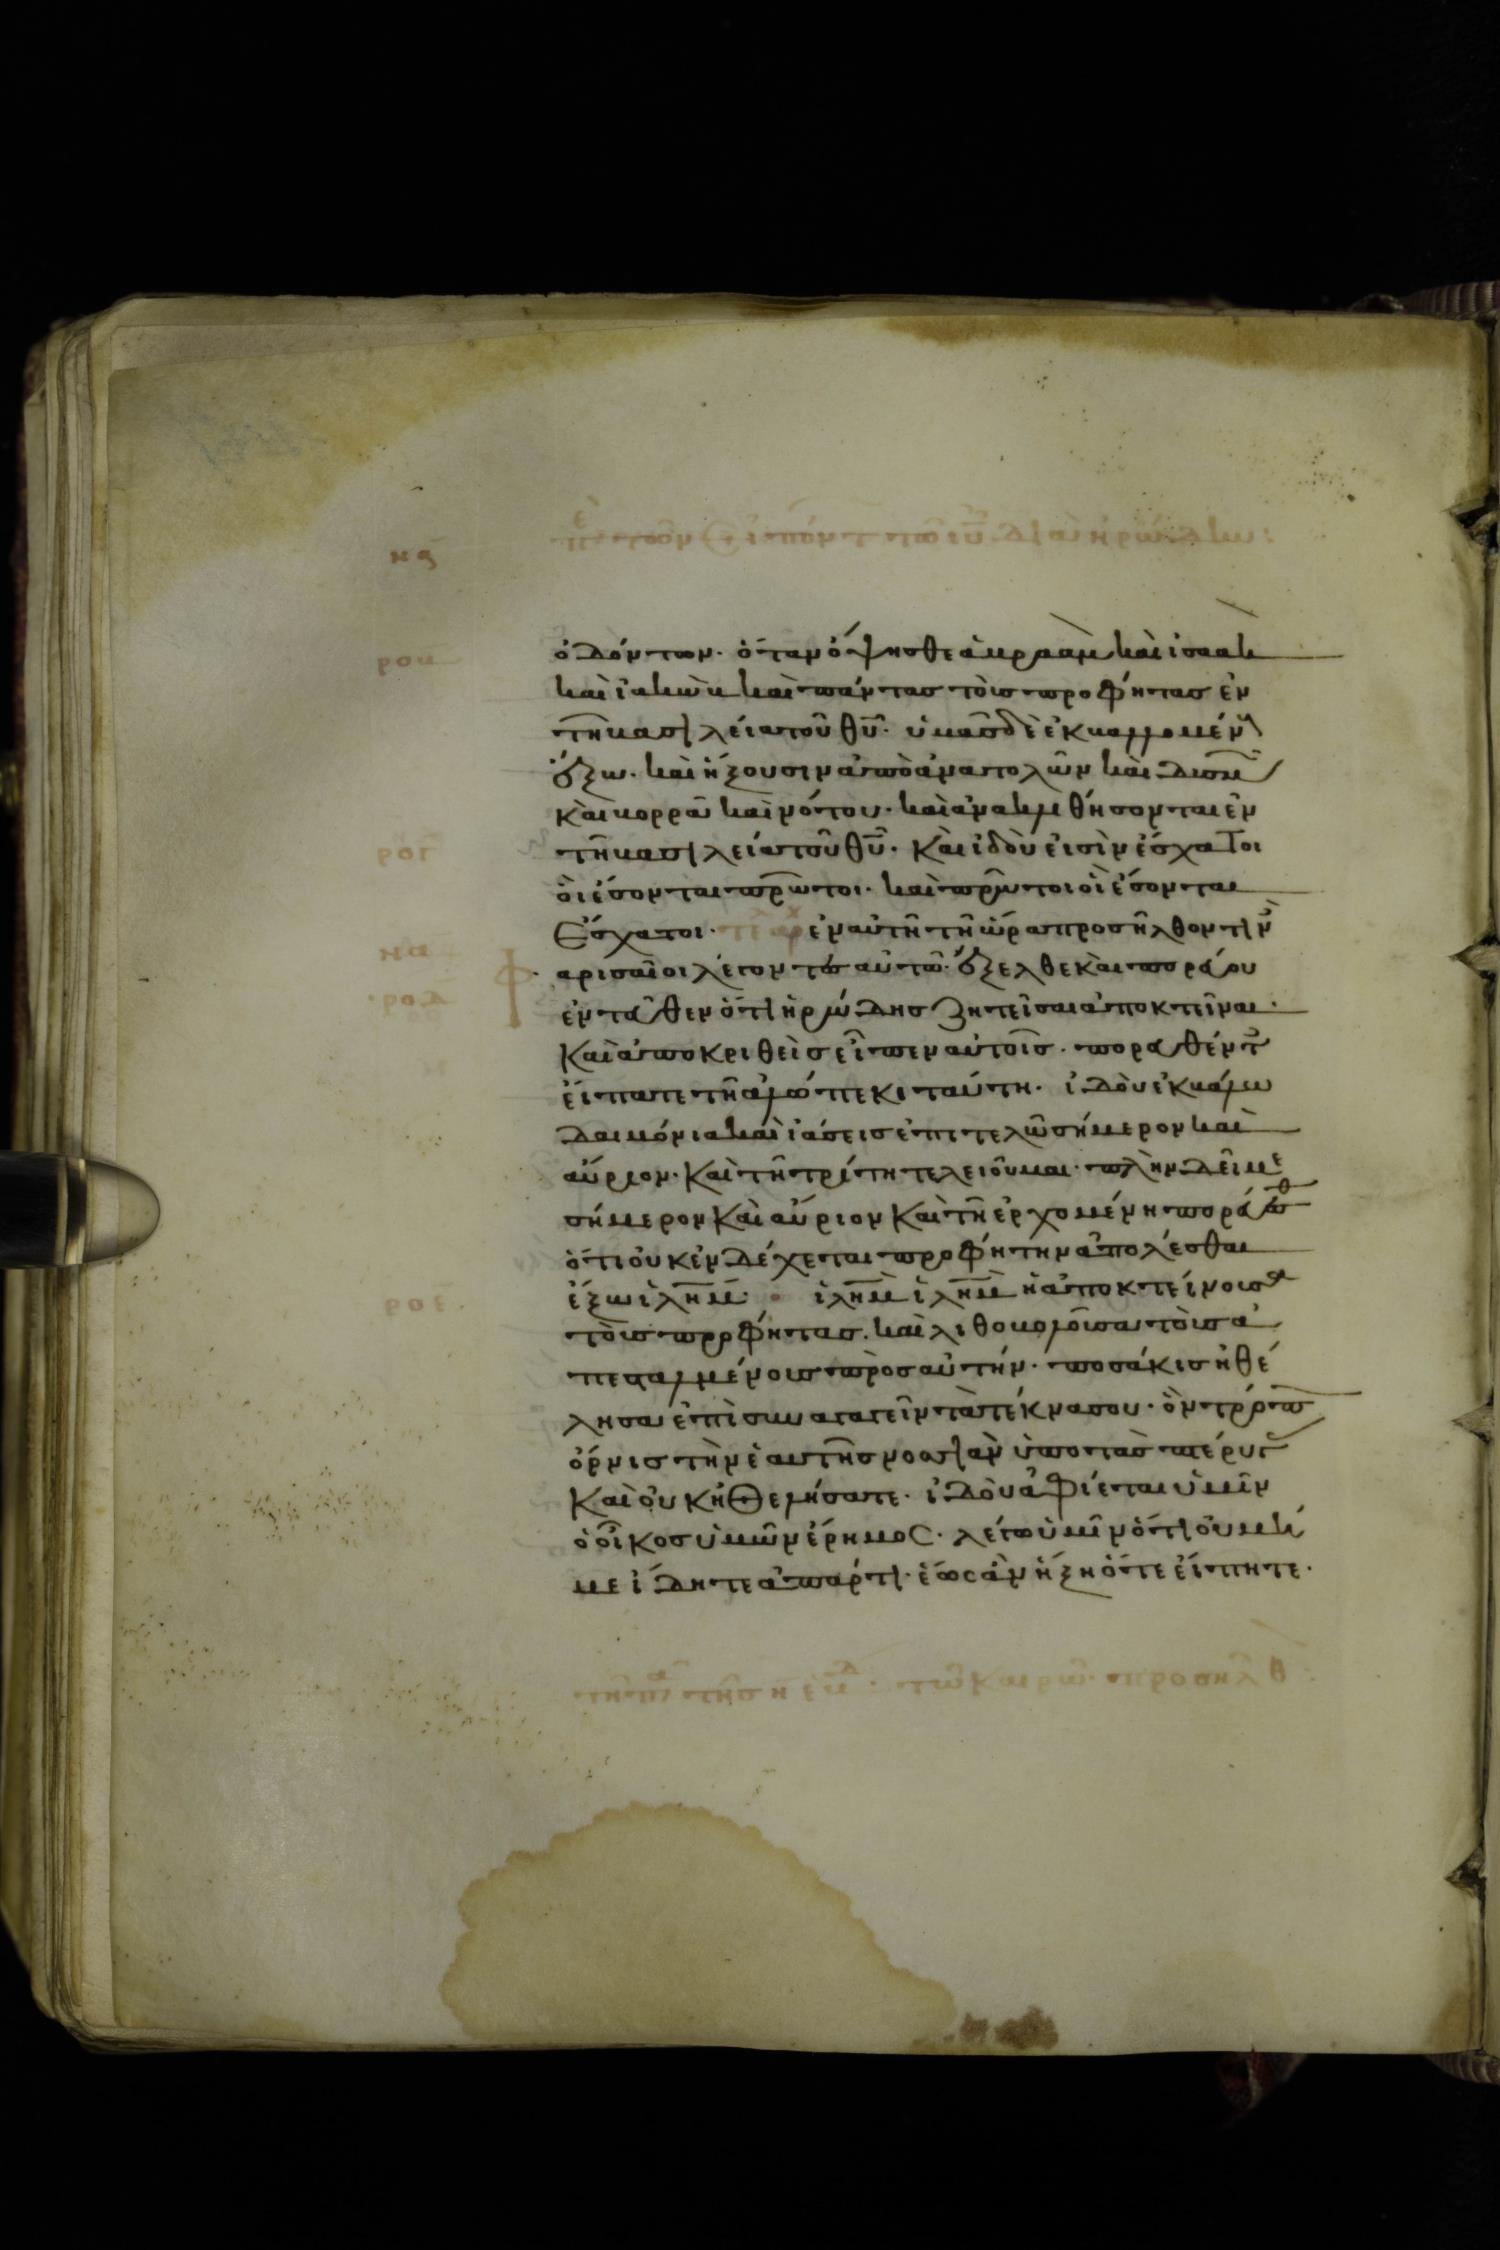 ὀδόντων· ὅταν ὄψησθε ἀβραὰμ καὶ ἰσαὰκ
καὶ ἰακὼβ καὶ πάντας τοὺς προφήτας ἐν
τῆ βασιλεία τοῦ θυ̅· ὑμᾶς δὲ ἐκβαλλομέν
ἔξω· καὶ ἥξουσιν ἀπὸ ἀνατολῶν καὶ δυσμ
καὶ βορρᾶ καὶ νότου· καὶ ἀνακλιθήσονται ἐν
τῆ βασιλεία τοῦ θυ̅· καὶ ἰδοὺ εἰσὶν ἔσχατοι
οἳ ἔσονται πρῶτοι· καὶ πρῶτοι οἳ ἔσονται
ἔσχατοι· ἐν αὐτῆ τῆ ὥρα προσῆλθον τιν
φαρισαῖοι λέγοντες αὐτῶ· ἔξελθε καὶ πορεύου
ἐντεῦθεν ὅτι ἡρώδης ζητεῖ σαι ἀποκτεῖναι·
καὶ ἀποκριθεὶς εἶπεν αὐτοῖς· πορευθέντ
εἴπατε τῆ ἀλώπεκι ταύτη· ἰδοὺ ἐκβάλλω
δαιμόνια καὶ ἰάσεις ἐπιτελῶ σήμερον καὶ
αὔριον· καὶ τῆ τρίτη τελειοῦμαι· πλὴν δεῖ με
σήμερον καὶ αὔριον καὶ τῆ ἐρχομένη πορεύεσθ
ὅτι οὐκ ἐνδέχεται προφήτην ἀπολέσθαι
ἔξω ἰλη̅μ· ἰλη̅μ ἰλη̅μ ἡ ἀποκτείνουσα
τοὺς προφήτας· καὶ λιθοβολοῦσα τοὺς ἀ
πεσταλμένους πρὸς αὐτήν· ποσάκις ἠθέ
λησα ἐπισυναγαγεῖν τὰ τέκνα σου· ὃν τρόπ
ὄρνις τὴν ἑαυτῆς νοσσιὰν ὑπὸ τὰς πτέρυγ
καὶ οὐκ ἠθελήσατε· ἰδοὺ ἀφίεται ὑμῖν
ὁ οἶκος ὑμῶν ἔρημος· λέγω ὑμῖν ὅτι οὐ μή
με ἴδητε ἀπάρτι· ἕως ἂν ἥξη ὅτε εἴπητε·